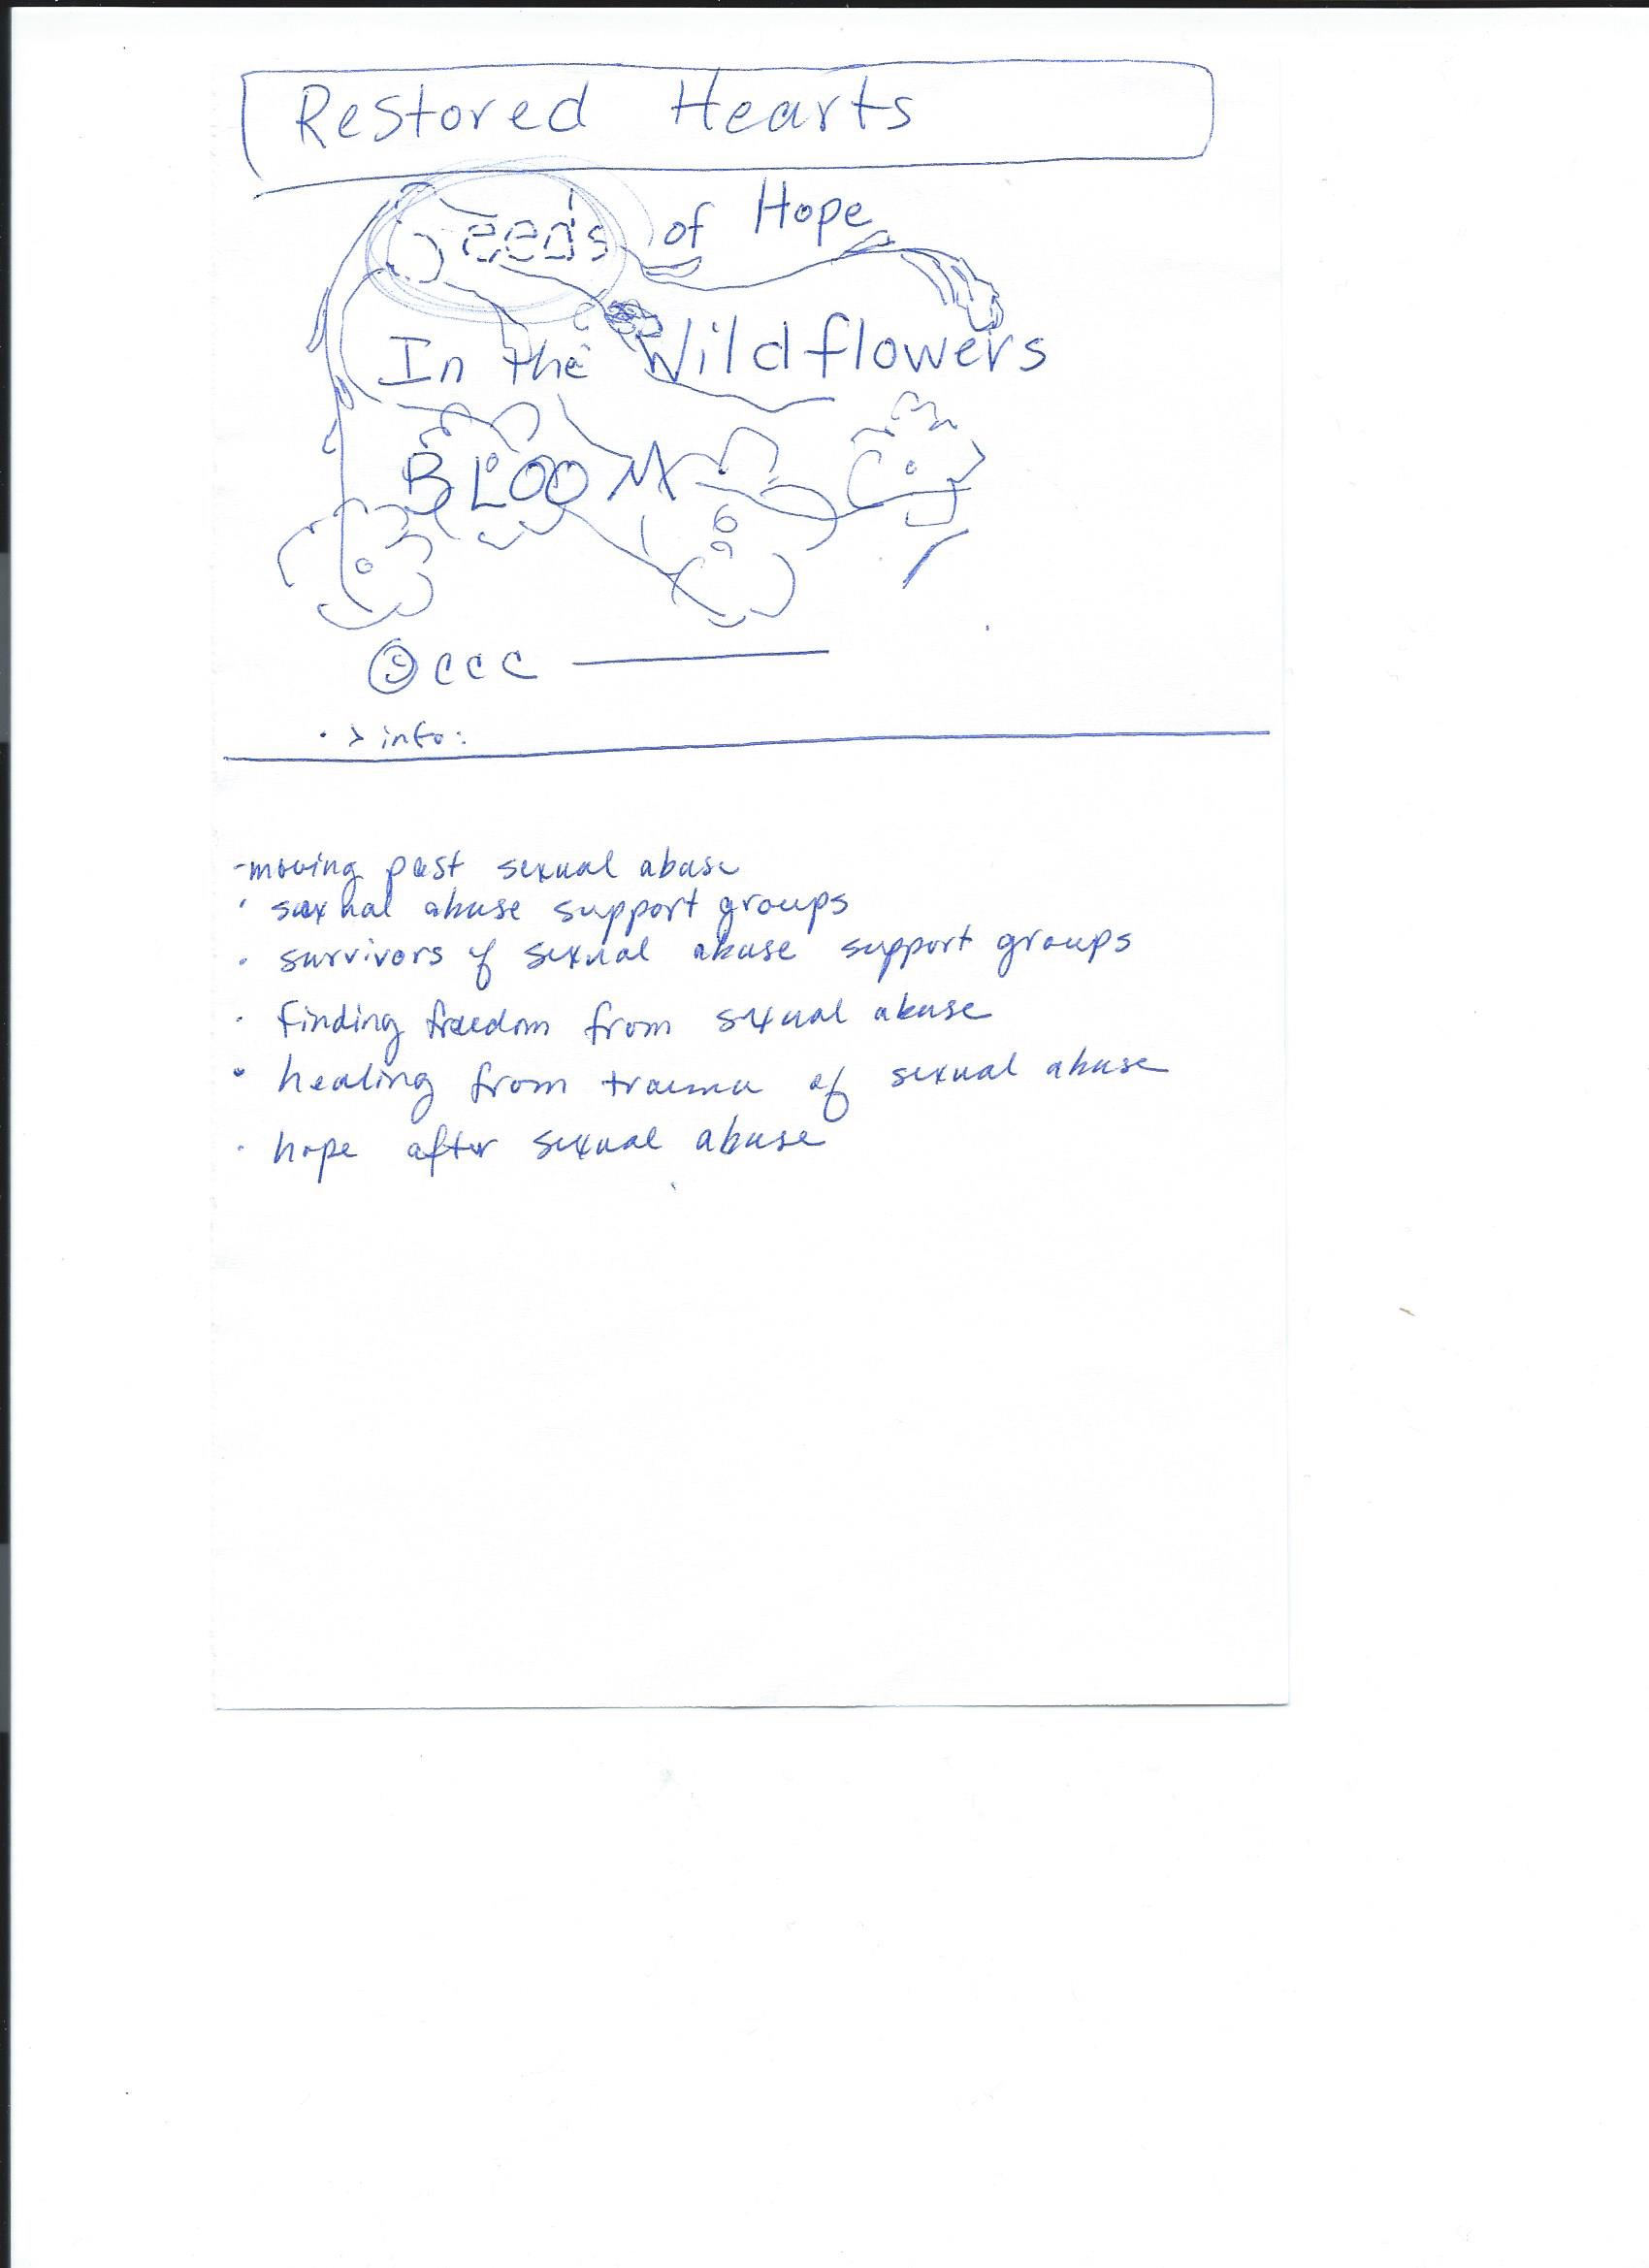 Restored Hearts
Seeds of Hope
In the Wildflowers
BLOOM
© CCC
· > info:
- moving past sexual abuse
· sexual abuse support groups
· survivors of sexual abuse support groups
· finding freedom from sexual abuse
· healing from trauma of sexual abuse
· hope after sexual abuse